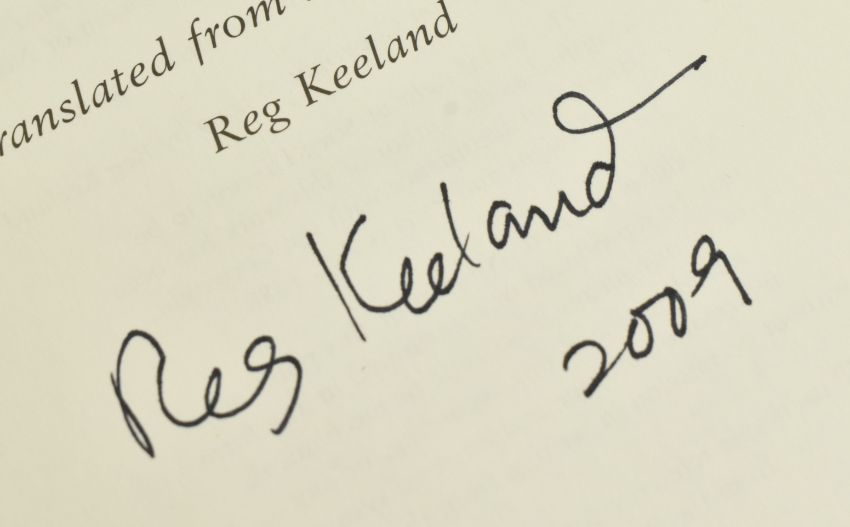 ranslated from
Reg Keeland
Reg Keeland
2009